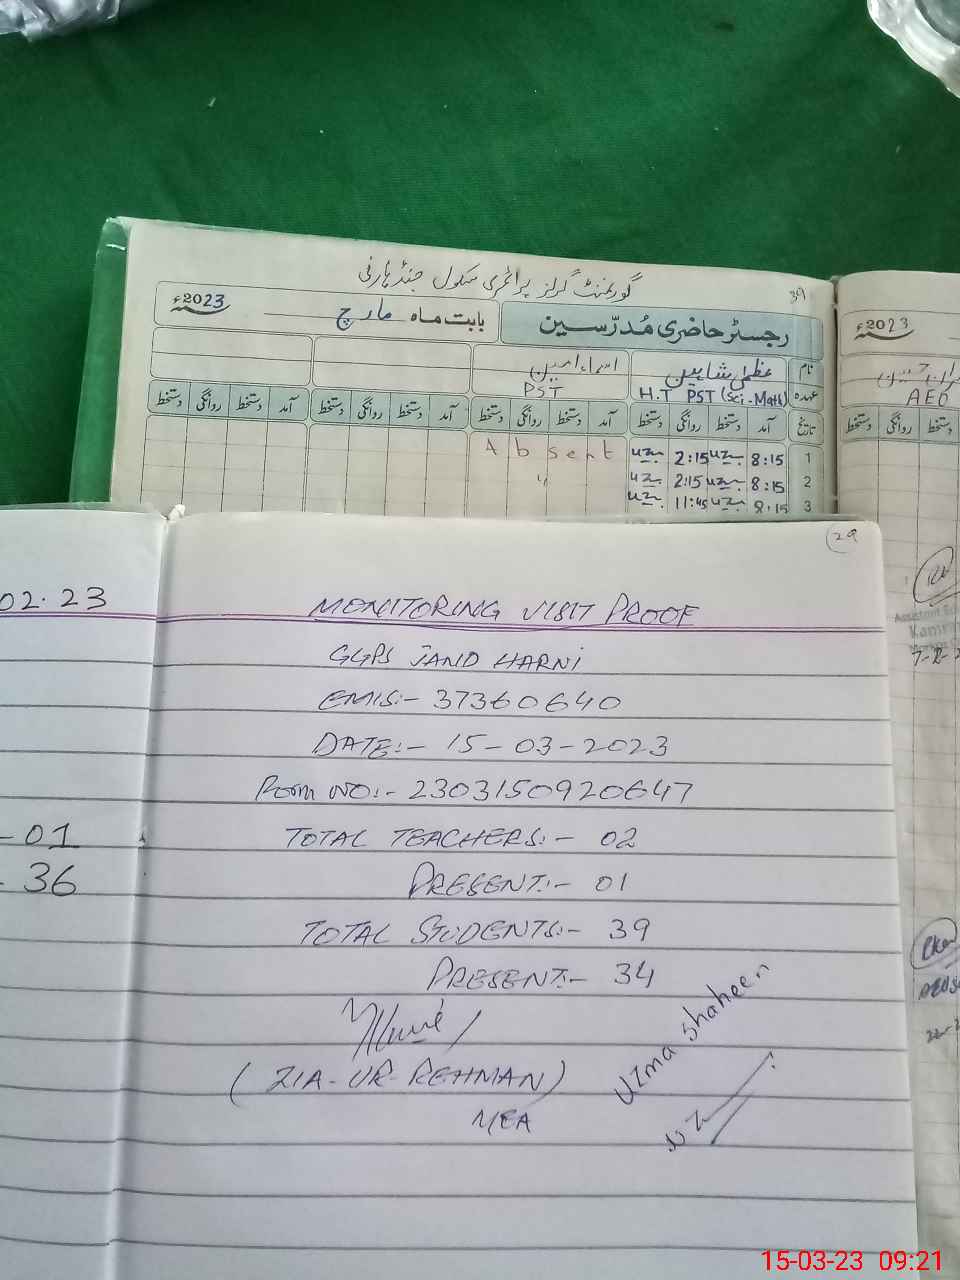 گورنمنٹ گرلز پرائمری سکول جنڈ ہارنی
39
رجسٹر حاضری مُدرّسین
بابت ماہ مارچ
2023ء
نام
عظمیٰ شاہین
اسماء امین
عہدہ
H.T PST (Sci-Math)
PST
تاریخ آمد دستخط روانگی دستخط آمد دستخط روانگی دستخط آمد دستخط روانگی دستخط آمد دستخط روانگی دستخط
1 8:15 uz 2:15 uz Absent
2 8:15 uz 2:15 uz "
3 8:15 uz 11:45 uz
2023ء
AEO
دستخط روانگی دستخط
29
MONITORING VISIT PROOF
GGPS JAND HARNI
EMIS:- 37360640
DATE:- 15-03-2023
Form NO:- 2303150920647
TOTAL TEACHERS:- 02
PRESENT:- 01
TOTAL STUDENTS:- 39
PRESENT:- 34
(ZIA-UR-REHMAN)
MEA
Uzma shaheen
uz
02.23
-01
- 36
15-03-23 09:21